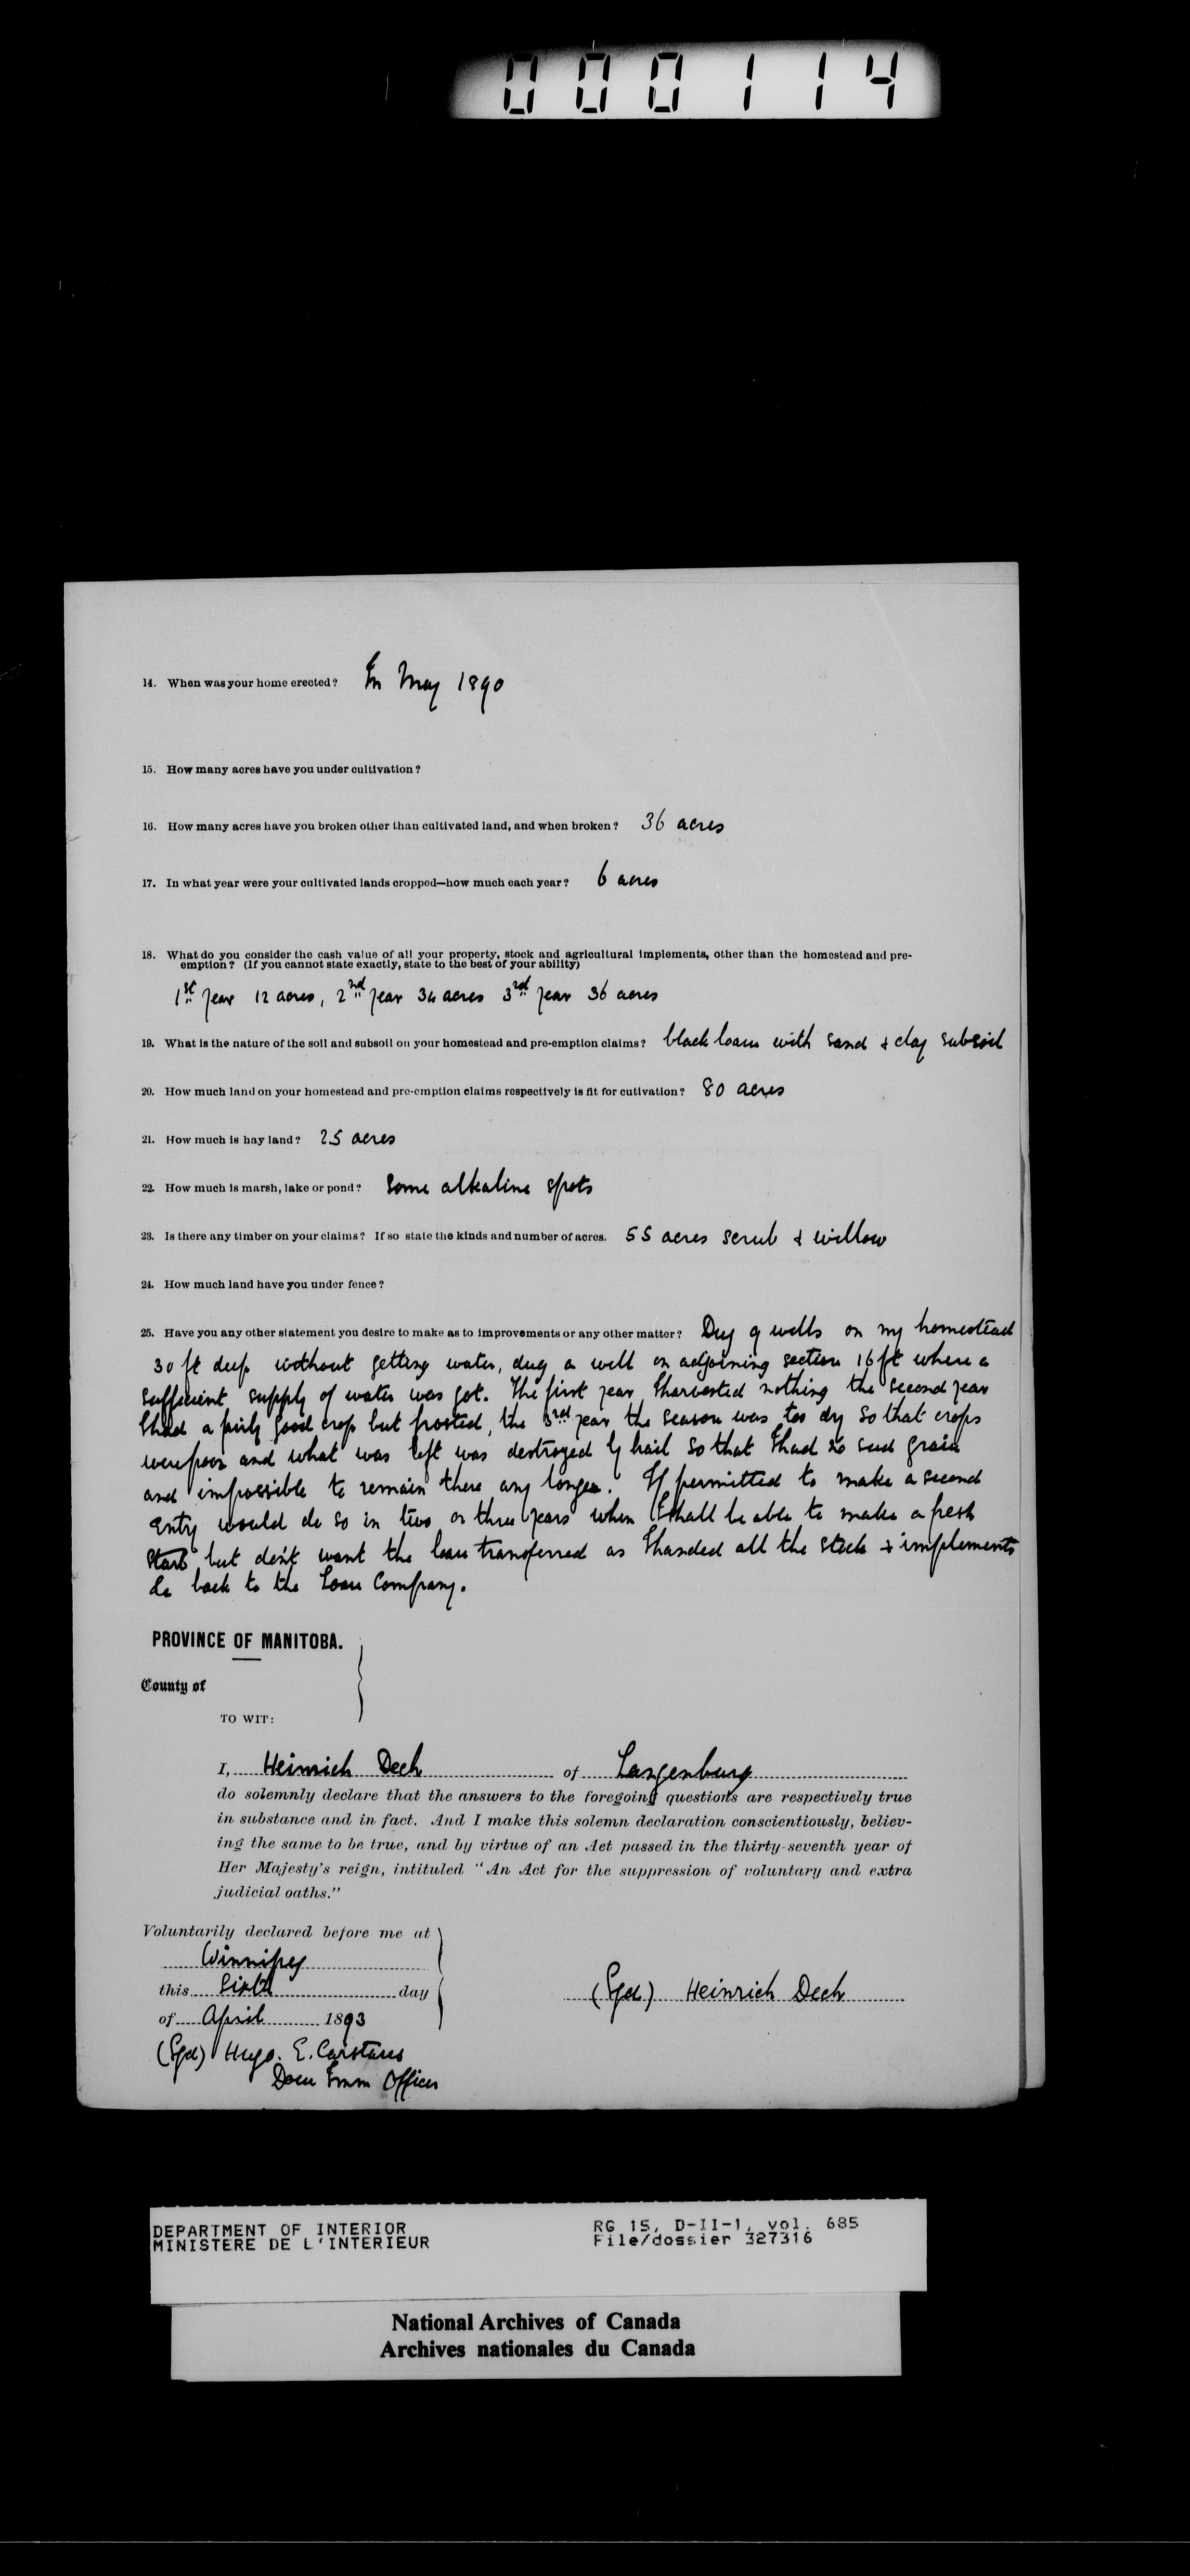 000114
14. When was your home erected? In May 1890
15. How many acres have you under cultivation?
16. How many acres have you broken other than cultivated land, and when broken? 36 acres
17. In what year were your cultivated lands cropped—how much each year? 6 acres
18. What do you consider the cash value of all your property, stock and agricultural implements, other than the homestead and pre-
emption? (If you cannot state exactly, state to the best of your ability)
1st year 12 acres, 2nd year 34 acres 3rd year 36 acres
19. What is the nature of the soil and subsoil on your homestead and pre-emption claims? black loam with sand & clay subsoil
20. How much land on your homestead and pre-emption claims respectively is fit for cutivation? 80 acres
21. How much is hay land? 25 acres
22. How much is marsh, lake or pond? Some alkaline spots
23. Is there any timber on your claims? If so state the kinds and number of acres. 55 acres scrub & willow
24. How much land have you under fence?
25. Have you any other statement you desire to make as to improvements or any other matter? Dug 9 wells on my homestead
30 ft deep without getting water, dug a well on adjoining section 16 ft where a
sufficient supply of water was got. The first year I harvested nothing the second year
I had a fairly good crop but frosted, the 3rd year the season was too dry so that crops
were poor and what was left was destroyed by hail so that I had no seed grain
and impossible to remain there any longer. If permitted to make a second
entry would do so in two or three years when I shall be able to make a fresh
start but don't want the loan transferred as I handed all the stock & implements
&c back to the Loan Company.
PROVINCE OF MANITOBA.
County of
TO WIT:
I, Heinrich Dech of Langenburg
do solemnly declare that the answers to the foregoing questions are respectively true
in substance and in fact. And I make this solemn declaration conscientiously, believ-
ing the same to be true, and by virtue of an Act passed in the thirty-seventh year of
Her Majesty's reign, intituled "An Act for the suppression of voluntary and extra
judicial oaths."
Voluntarily declared before me at
Winnipeg
this Sixth day
of April 1893
(Sgd) Heinrich Dech
(Sgd) Hugo. E. Carstens
Dom Imm Officer
DEPARTMENT OF INTERIOR
MINISTERE DE L'INTERIEUR
RG 15, D-II-1, vol. 685
File/dossier 327316
National Archives of Canada
Archives nationales du Canada